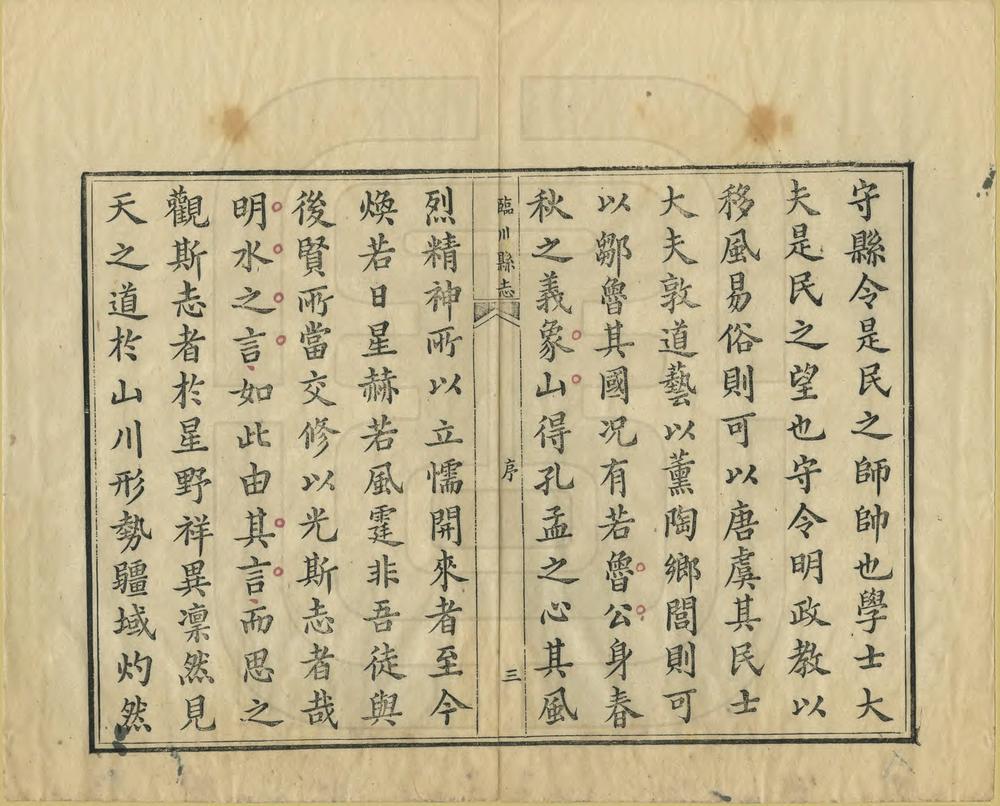 守縣令是民之師帥也學士大
夫是民之望也守令明政教以
移風易俗則可以唐虞其民士
大夫敦道藝以薰陶鄉閭則可
以鄒魯其國况有若魯公身春
秋之義象山得孔孟之心其風
臨川縣志
序
三
烈精神所以立懦開來者至今
煥若日星赫若風霆非吾徒與
後賢所當交修以光斯志者哉
明水之言如此由其言而思之
觀斯志者於星野祥異凛然見
天之道於山川形勢疆域灼然